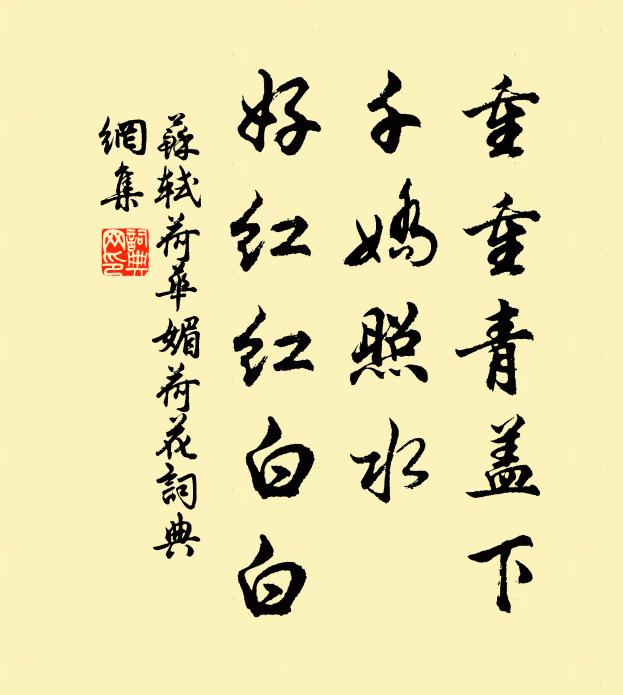 重重青盖下
千嬌照水
好红红白白
蘇軾荷華媚荷花詞典
網集
詞典
网印